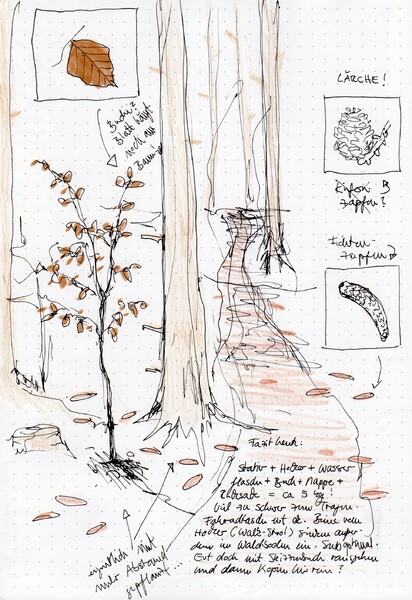 Buche?
Blatt hängt
noch am
Baum
LÄRCHE!
Kiefern
zapfen?
Fichten
zapfen?
Fazit heute:
Stativ + Hocker + Wasser
flasche + Buch + Mappe +
= ca 5 kg!
Viel zu schwer zum Tragen.
Fahrradtasche ist ok. Beine vom
Hocker (Walk-Stool) sinken außer
dem im Waldboden ein. Suboptimal.
Evt doch mit Skizzenbuch rausgehen
und dann Kopien hin rein?
eigentlich mit
mehr Abstand
gepflanzt...